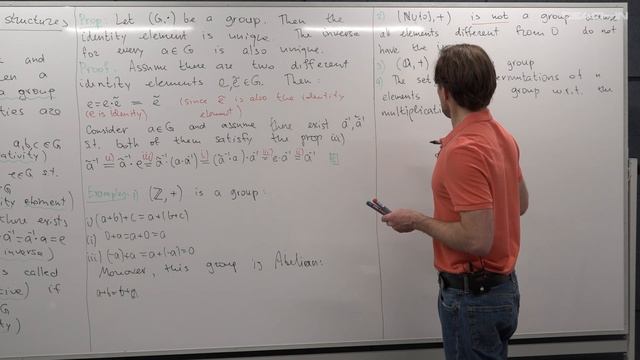 structures
and
en a
a group
ties are
a,b,c ∈ G
ativity)
e ∈ G s.t.
G
ity element)
there exists
a⁻¹ = a⁻¹·a = e
inverse)
is called
tive) if
∈ G
ty)
Prop: Let (G,·) be a group. Then the
identity element is unique. The inverse
for every a∈G is also unique.
Proof: Assume there are two different
identity elements e, ẽ ∈ G. Then:
e = e·ẽ = ẽ (since ẽ is also the identity
(e is identity) element)
Consider a∈G and assume there exist a⁻¹, ã⁻¹
s.t. both of them satisfy the prop iii)
ã⁻¹ = ã⁻¹·e = ã⁻¹·(a·a⁻¹) = (ã⁻¹·a)·a⁻¹ = e·a⁻¹ = a⁻¹
Examples: 1) (ℤ,+) is a group:
i) (a+b)+c = a+(b+c)
ii) 0+a = a+0 = a
iii) (-a)+a = a+(-a) = 0
Moreover, this group is Abelian:
a+b=b+a
2) (ℕ∪{0},+) is not a group
all elements different from 0 do not
have the
3) (ℚ,+) group
4) The set permutations of n
elements group w.r.t. the
multiplicati